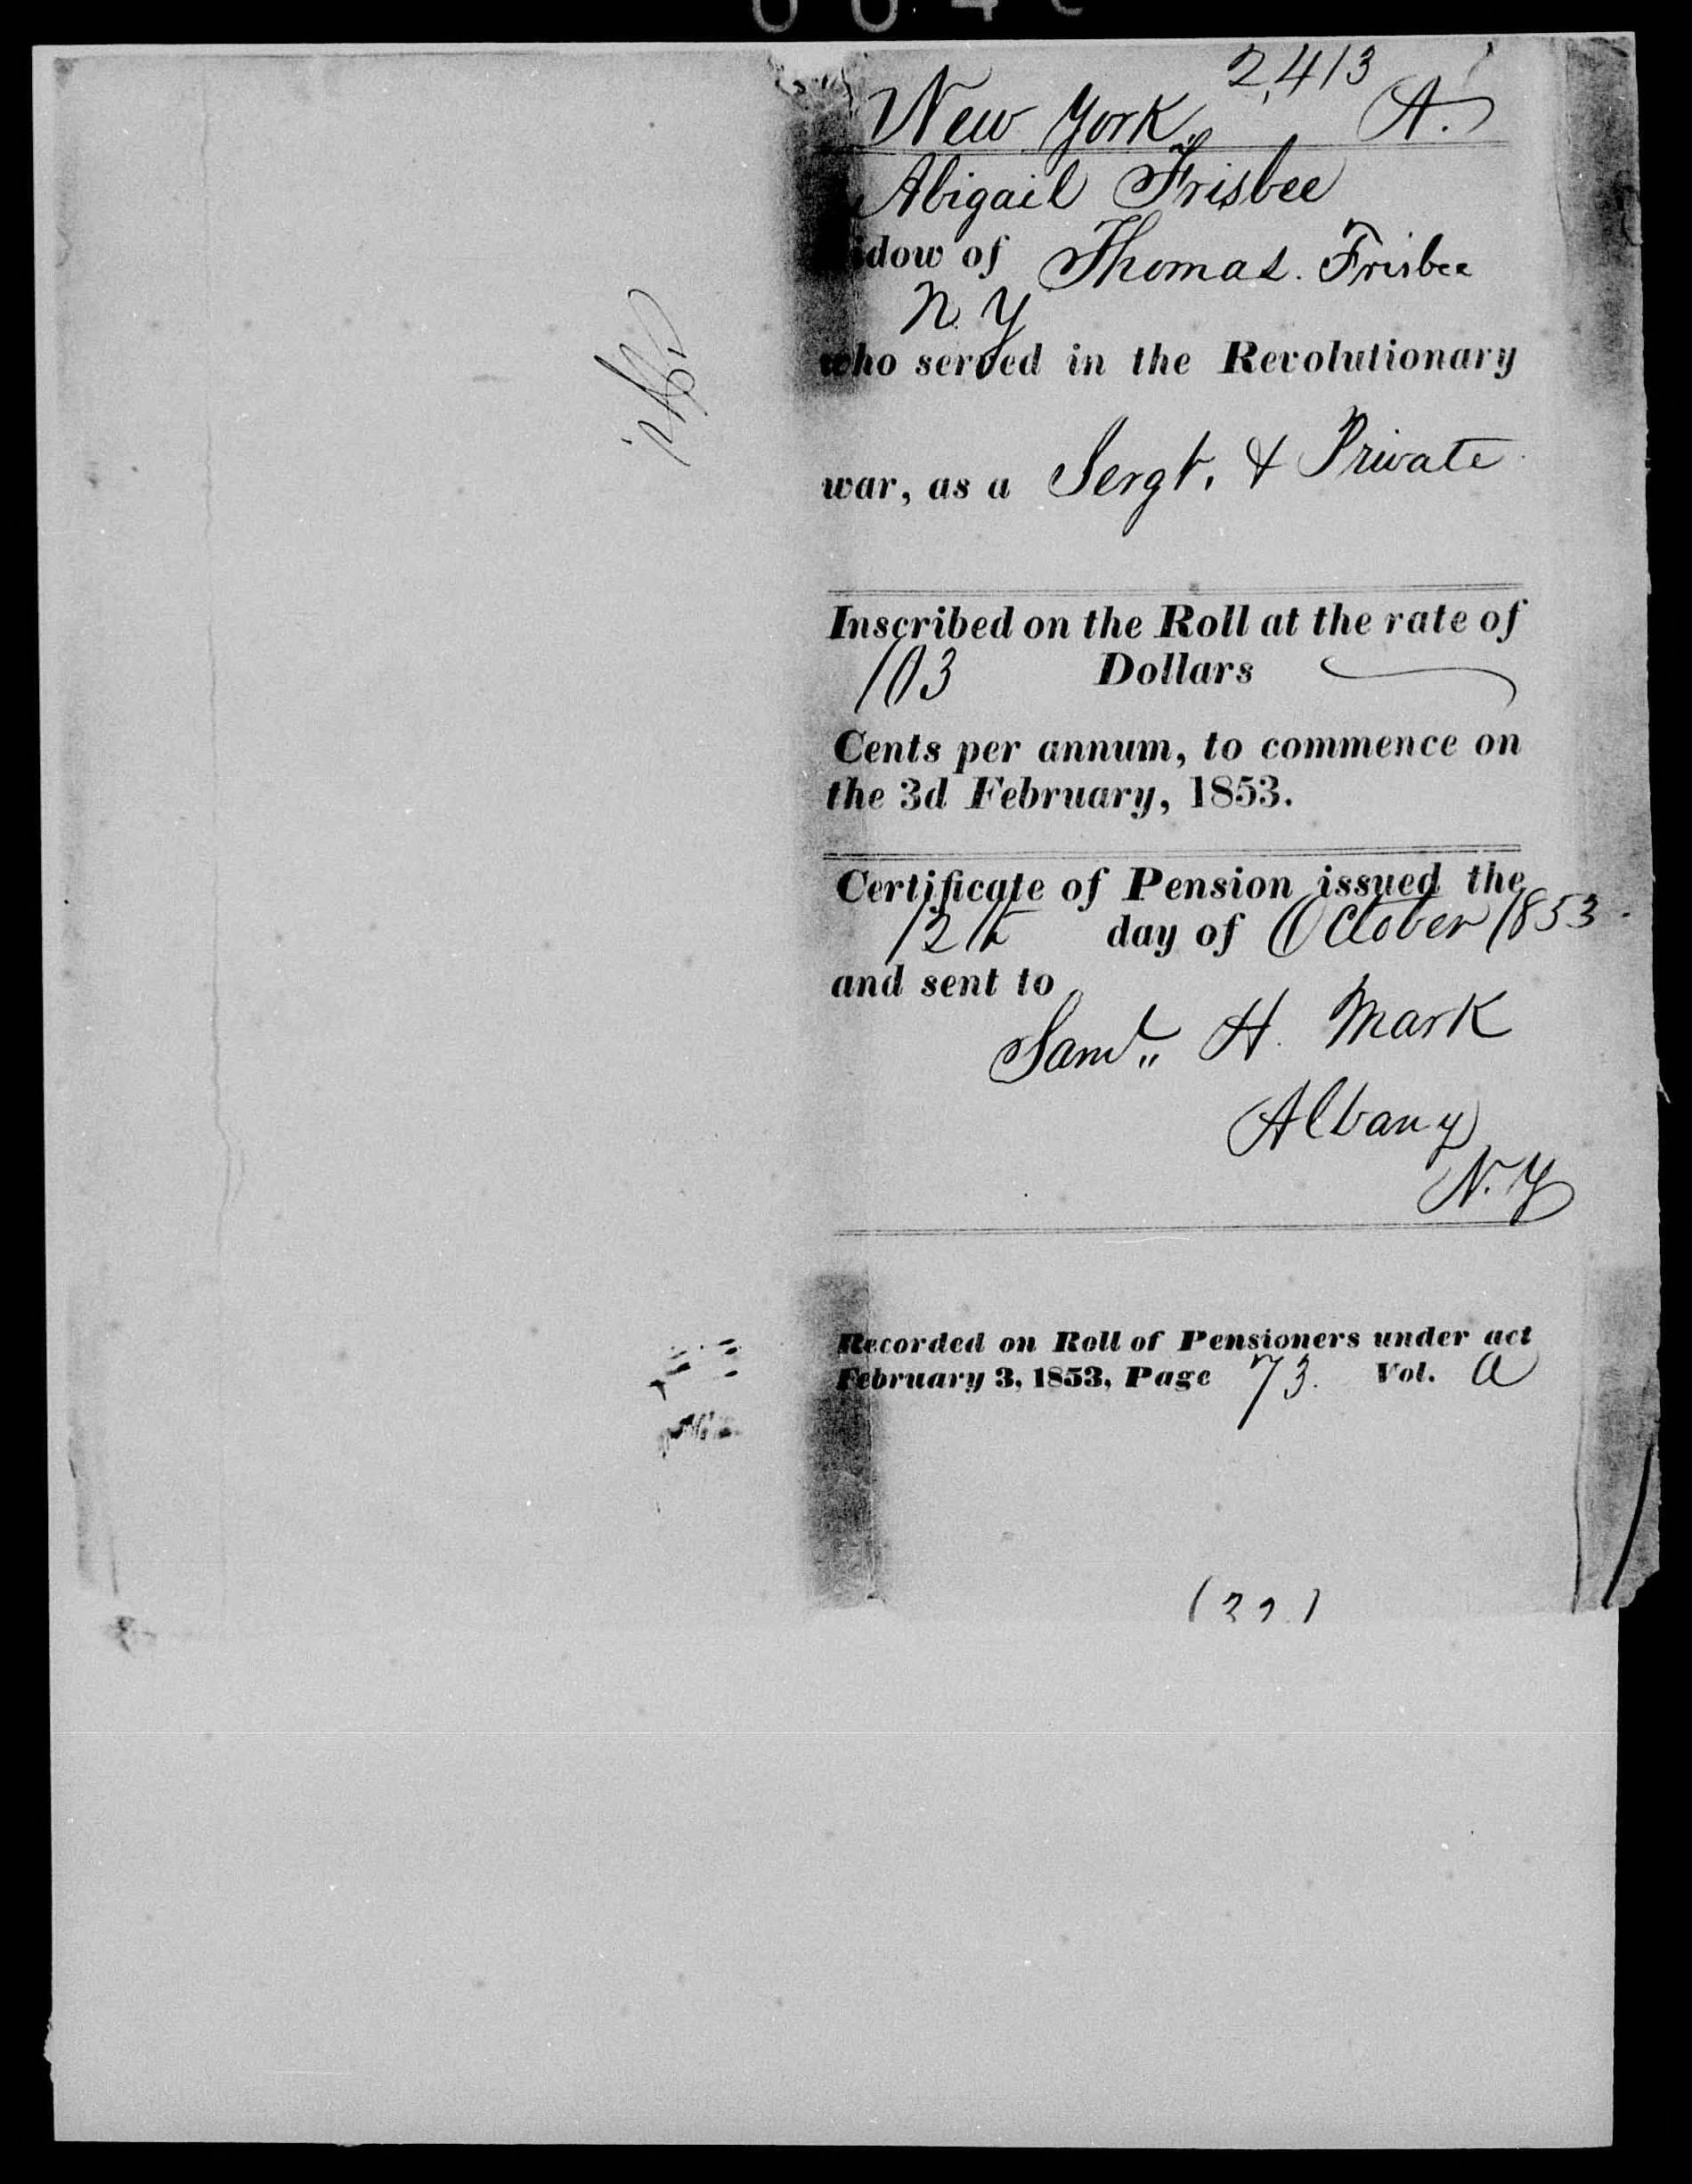 2,413
New York A.
Abigail Frisbee
idow of Thomas. Frisbee
N. Y
who served in the Revolutionary
war, as a Sergt. & Private
Inscribed on the Roll at the rate of
103 Dollars
Cents per annum, to commence on
the 3d February, 1853.
Certificate of Pension issued the
12th day of October 1853.
and sent to
Saml. H. Mark
Albany
N. Y
Recorded on Roll of Pensioners under act
February 3, 1853, Page 73. Vol. A